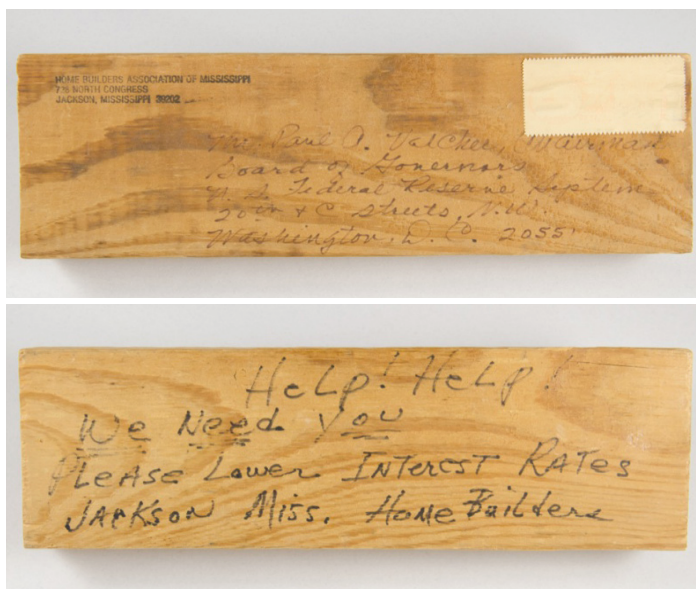 HOME BUILDERS ASSOCIATION OF MISSISSIPPI
NORTH CONGRESS
JACKSON, MISSISSIPPI 39202
Mr. Paul A. Valcher, Chairman
Board of Governors
U. S. Federal Reserve System
20th & C Streets, N.W.
Washington, D. C. 2055
Help! Help!
We Need You
Please Lower INTEREST RATES
JACKSON Miss. Home Builders